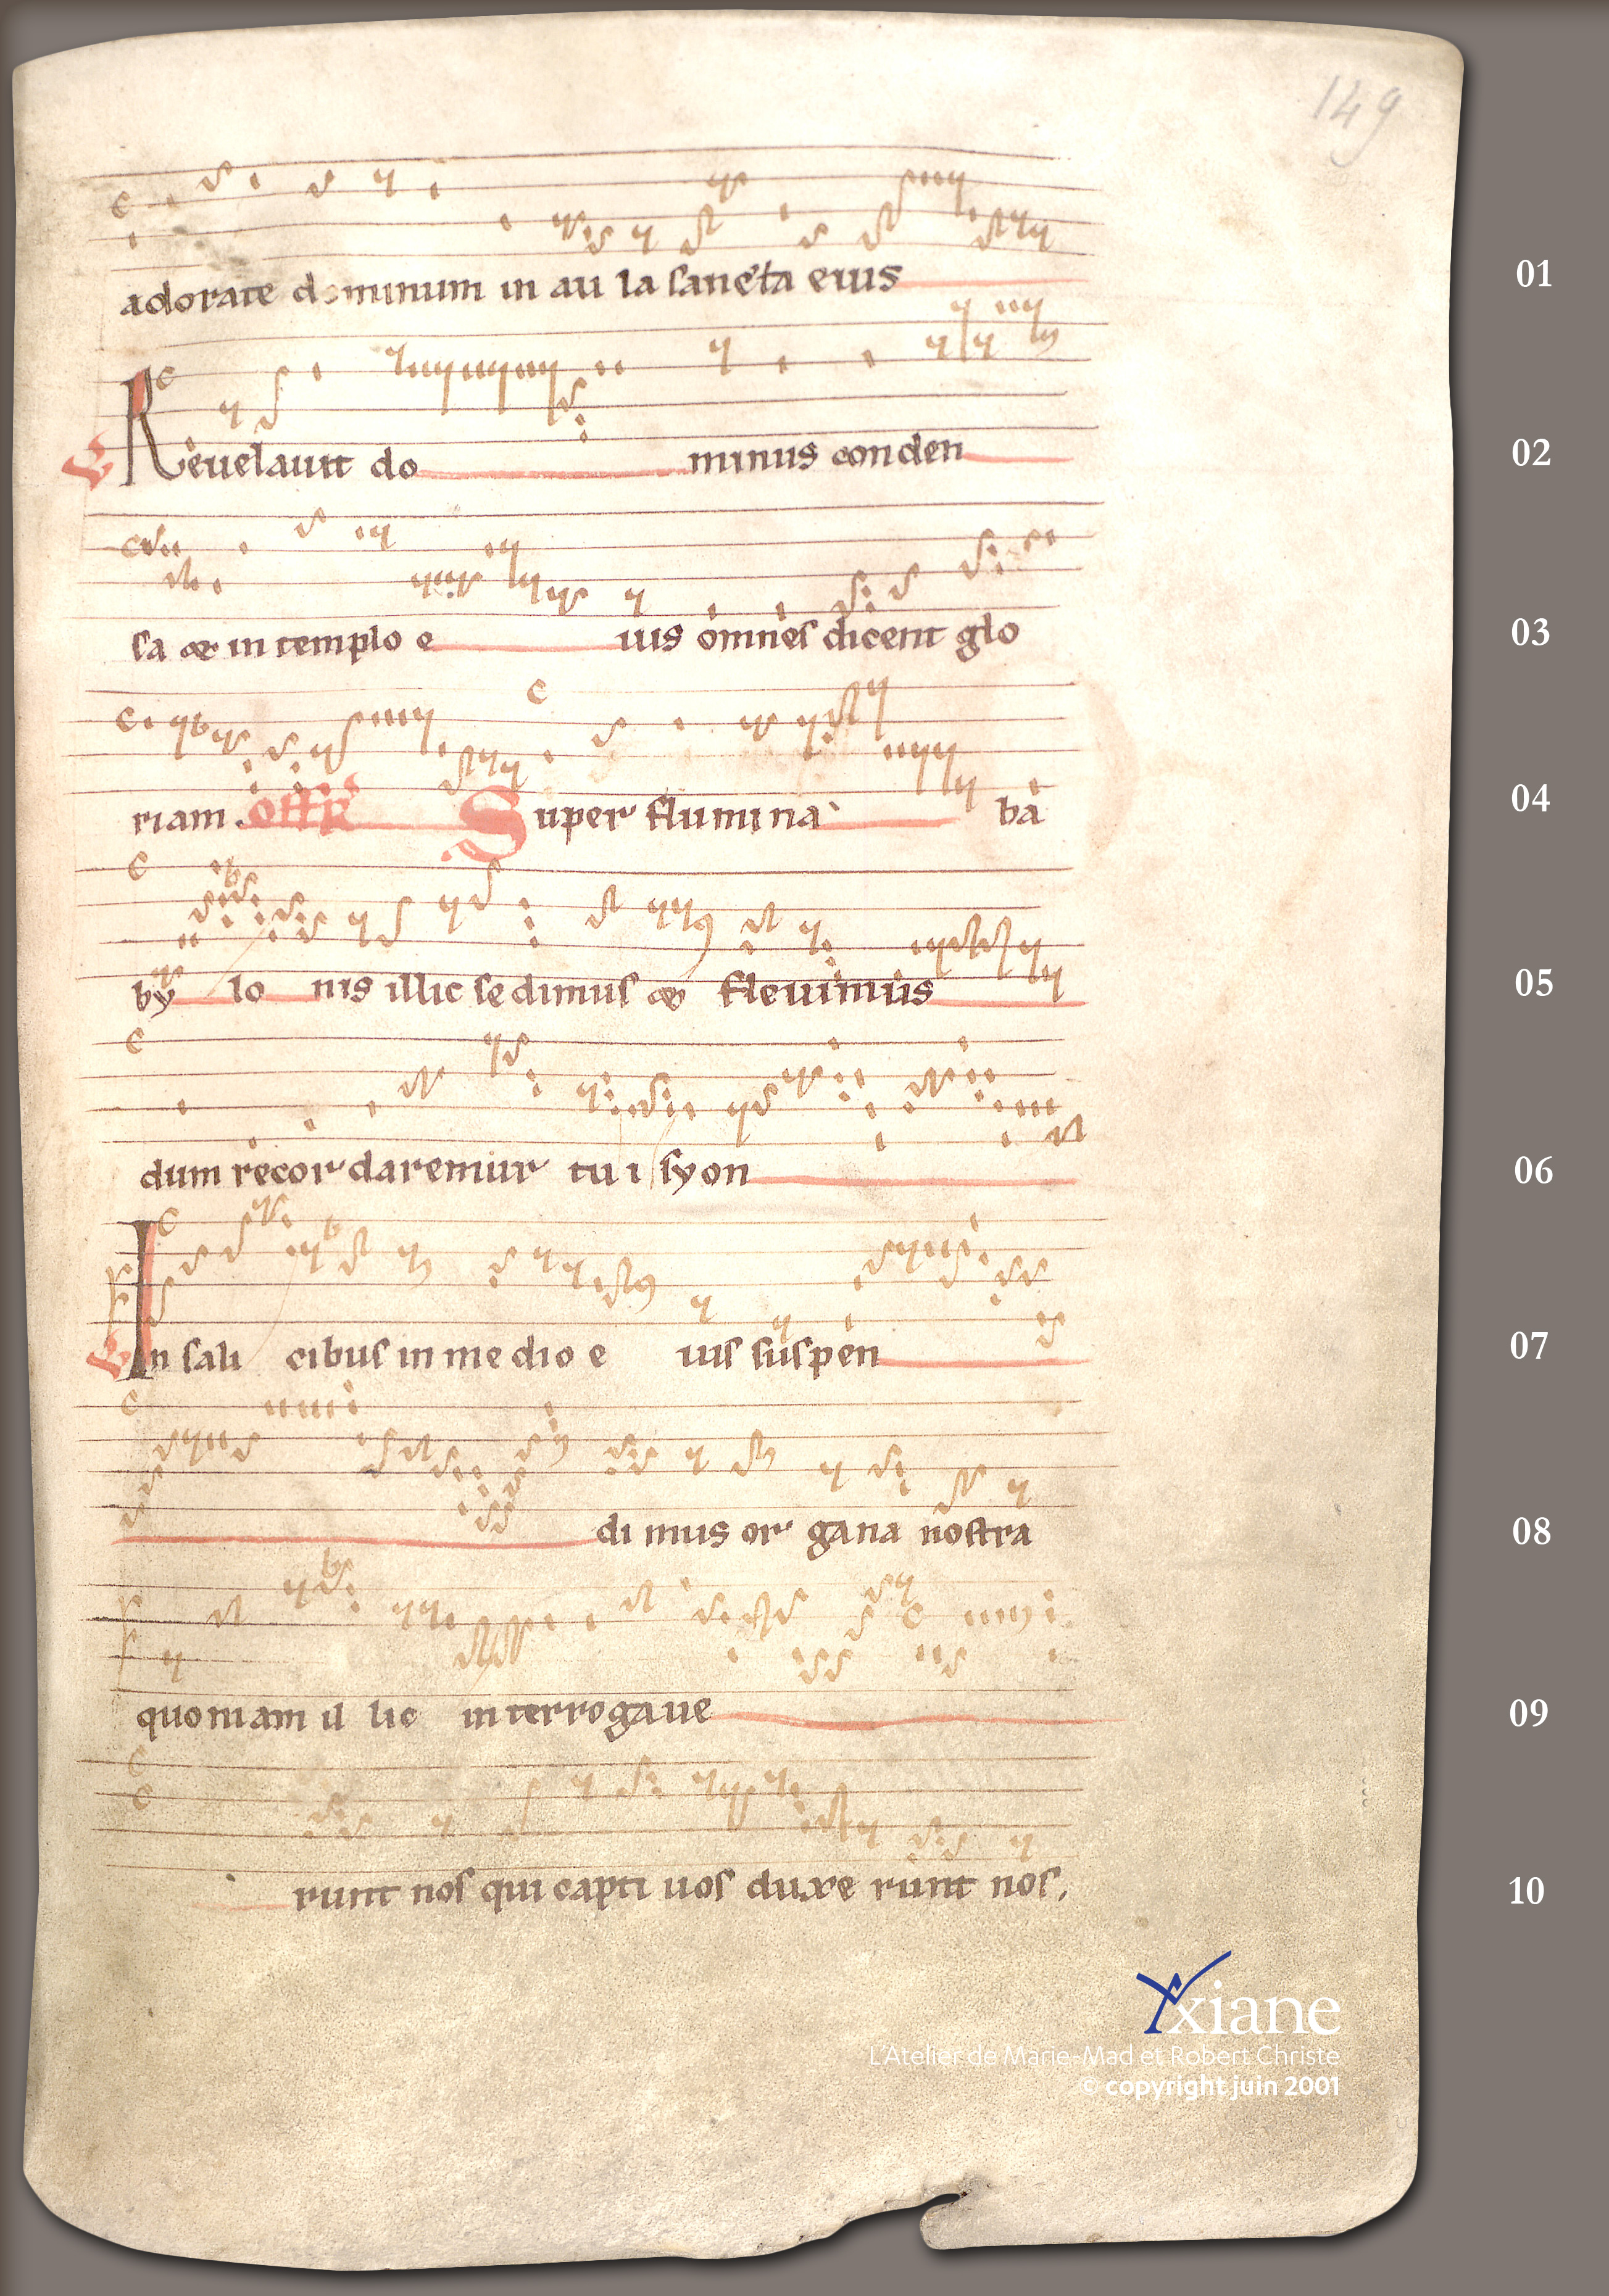 149
adorate dominum in au la sancta eius
01
V Reuelauit do minus conden
02
sa & in templo e ius omnes dicent glo
03
riam. Offr Super flumina ba
04
by lo nis illic sedimus & fleuimus
05
dum recordaremur tui syon
06
V In sali cibus in medio e ius suspen
07
di mus or gana nostra
08
quoniam il lic interrogaue
09
runt nos qui capti uos duxe runt nos.
10
Yxiane
L'Atelier de Marie-Mad et Robert Christe
© copyright juin 2001